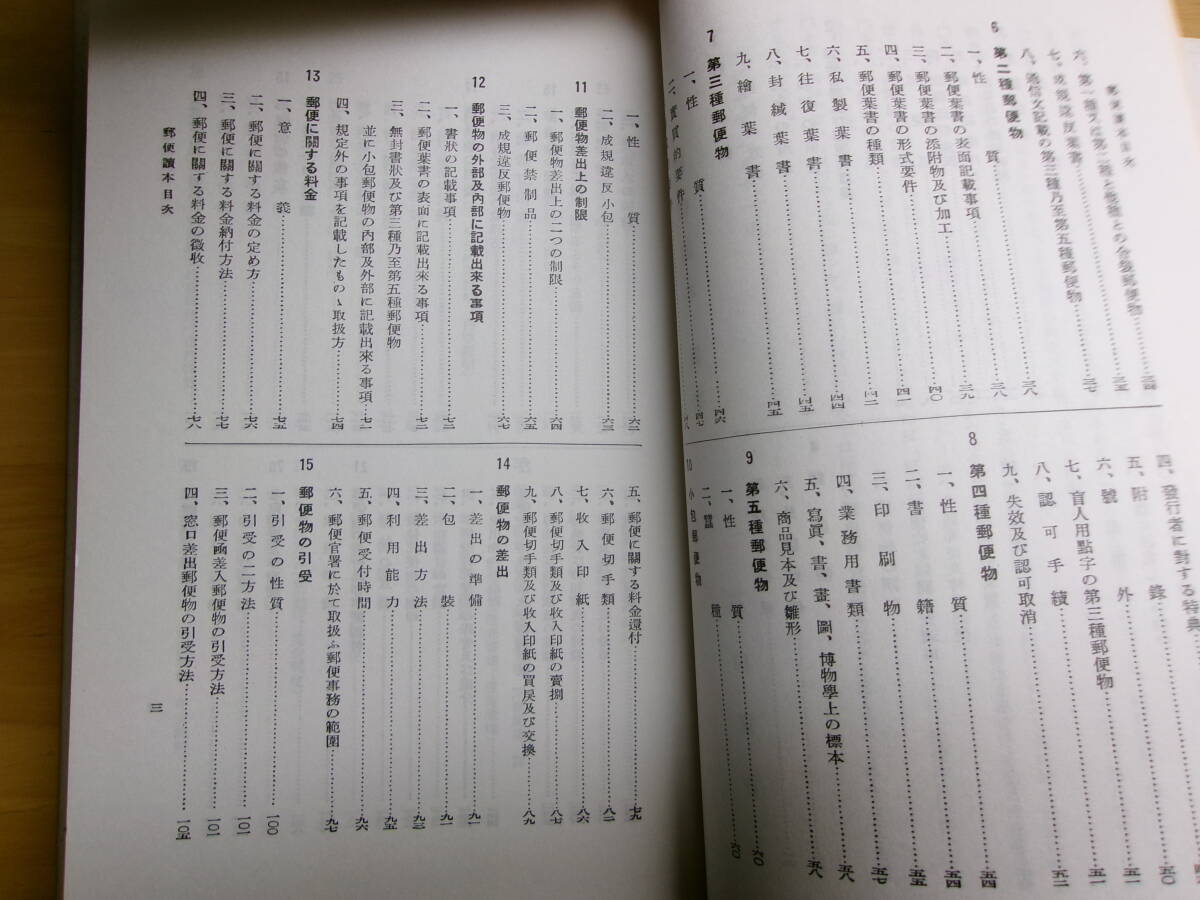 六、第一種又は第二種と他種との合裝郵便物……三四
七、成規違反葉書……三七
八、通信文記載の第三種乃至第五種郵便物……三八
6 第二種郵便物
一、性質……三八
二、郵便葉書の表面記載事項……三九
三、郵便葉書の添附物及び加工……四〇
四、郵便葉書の形式要件……四一
五、郵便葉書の種類……四二
六、私製葉書……四四
七、往復葉書……四五
八、封緘葉書……四五
九、繪葉書……四六
7 第三種郵便物
一、性質……四七
二、實質的要件
四、發行者に對する特典
五、附錄……五〇
六、號外……五一
七、盲人用點字の第三種郵便物……五一
八、認可手續……五二
九、失效及び認可取消
8 第四種郵便物
一、性質……五四
二、書籍……五五
三、印刷物……五七
四、業務用書類……五八
五、寫眞、書、畫、圖、博物學上の標本
六、商品見本及び雛形……五八
9 第五種郵便物
一、性質……六〇
二、種……六〇
10 小包郵便物
一、性質……六二
二、成規違反小包……六三
11 郵便物差出上の制限
一、郵便物差出上の二つの制限……六四
二、郵便禁制品……六五
三、成規違反郵便物……六七
12 郵便物の外部及內部に記載出來る事項
一、書狀の記載事項……七二
二、郵便葉書の表面に記載出來る事項……七二
三、無封書狀及び第三種乃至第五種郵便物
並に小包郵便物の內部及外部に記載出來る事項…七二
四、規定外の事項を記載したものゝ取扱方……七四
13 郵便に關する料金
一、意義……七五
二、郵便に關する料金の定め方……七六
三、郵便に關する料金納付方法……七七
四、郵便に關する料金の徵收……七八
五、郵便に關する料金還付……七九
六、郵便切手類……八二
七、收入印紙……八六
八、郵便切手類及び收入印紙の賣捌……八七
九、郵便切手類及び收入印紙の買戾及び交換……八九
14 郵便物の差出
一、差出の準備……九一
二、包裝……九一
三、差出方法……九三
四、利用能力……九五
五、郵便受付時間……九六
六、郵便官署に於て取扱ふ郵便事務の範圍……九七
15 郵便物の引受
一、引受の性質……一〇〇
二、引受の二方法……一〇一
三、郵便凾差入郵便物の引受方法……一〇一
四、窓口差出郵便物の引受方法……一〇五
郵便讀本目次
三